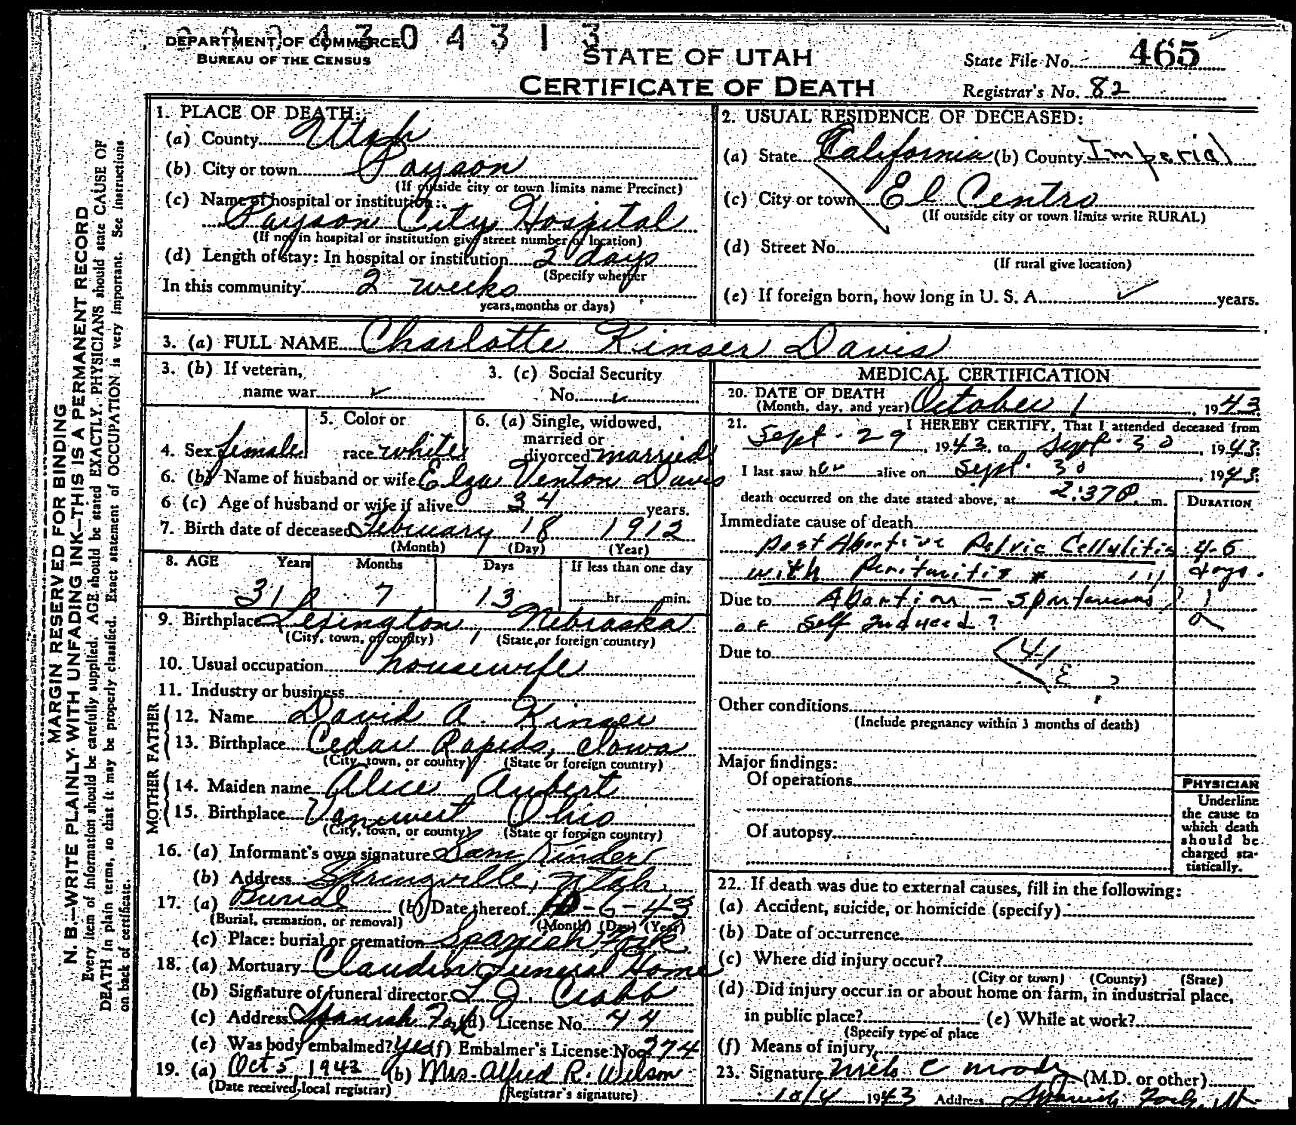 0 0 0 4 3 0 4 3 1 3
DEPARTMENT OF COMMERCE
BUREAU OF THE CENSUS
STATE OF UTAH
CERTIFICATE OF DEATH
State File No. 465
Registrar's No. 82
MARGIN RESERVED FOR BINDING
N. B.—WRITE PLAINLY WITH UNFADING INK—THIS IS A PERMANENT RECORD
Every item of information should be carefully supplied. AGE should be stated EXACTLY. PHYSICIANS should state CAUSE OF
DEATH in plain terms, so that it may be properly classified. Exact statement of OCCUPATION is very important. See instructions
on back of certificate.
1. PLACE OF DEATH:
(a) County Utah
(b) City or town Payson
(If outside city or town limits name Precinct)
(c) Name of hospital or institution:
Payson City Hospital
(If not in hospital or institution give street number or location)
(d) Length of stay: In hospital or institution 2 days
(Specify whether
In this community 2 weeks
years, months or days)
2. USUAL RESIDENCE OF DECEASED:
(a) State California (b) County Imperial
(c) City or town El Centro
(If outside city or town limits write RURAL)
(d) Street No.
(If rural give location)
(e) If foreign born, how long in U. S. A. ✓ years.
3. (a) FULL NAME Charlotte Kinser Davis
3. (b) If veteran,
name war ✓
3. (c) Social Security
No. ✓
4. Sex female
5. Color or
race white
6. (a) Single, widowed,
married or
divorced married
6. (b) Name of husband or wife Elza Venton Davis
6 (c) Age of husband or wife if alive 34 years.
7. Birth date of deceased February 18 1912
(Month) (Day) (Year)
8. AGE Years Months Days If less than one day
31 7 13 hr. min.
9. Birthplace Lexington, Nebraska
(City, town, or county) (State, or foreign country)
10. Usual occupation housewife
11. Industry or business
FATHER
12. Name David A. Kinser
13. Birthplace Cedar Rapids, Iowa
(City, town, or county) (State or foreign country)
MOTHER
14. Maiden name Alice Aubert
15. Birthplace Vanwert Ohio
(City, town, or county) (State or foreign country)
16. (a) Informant's own signature Sam Kinder
(b) Address Springville, Utah
17. (a) Burial (b) Date thereof 10-6-43
(Burial, cremation, or removal) (Month) (Day) (Year)
(c) Place: burial or cremation Spanish Fork
18. (a) Mortuary Claudin Funeral Home
(b) Signature of funeral director
(c) Address Spanish Fork (d) License No. 44
(e) Was body embalmed? yes (f) Embalmer's License No. 274
19. (a) Oct 5, 1943 (b) Mrs. Alfred R. Wilson
(Date received local registrar) (Registrar's signature)
MEDICAL CERTIFICATION
20. DATE OF DEATH
(Month, day, and year) October 1, 1943
21. I HEREBY CERTIFY, That I attended deceased from
Sept. 29, 1943, to Sept. 30, 1943.
I last saw her alive on Sept. 30 1943.
death occurred on the date stated above, at 2:37 P m.
DURATION
Immediate cause of death
Post Abortive Pelvic Cellulitis 4-5
with Peritonitis days.
Due to Abortion - spontaneous
or Self Induced ?
Due to
Other conditions
(Include pregnancy within 3 months of death)
Major findings:
Of operations
Of autopsy
PHYSICIAN
Underline
the cause to
which death
should be
charged sta-
tistically.
22. If death was due to external causes, fill in the following:
(a) Accident, suicide, or homicide (specify)
(b) Date of occurrence
(c) Where did injury occur?
(City or town) (County) (State)
(d) Did injury occur in or about home on farm, in industrial place,
in public place? (e) While at work?
(Specify type of place
(f) Means of injury
23. Signature Merlo C Moody (M.D. or other)
10/4 1943 Address Spanish Fork Ut